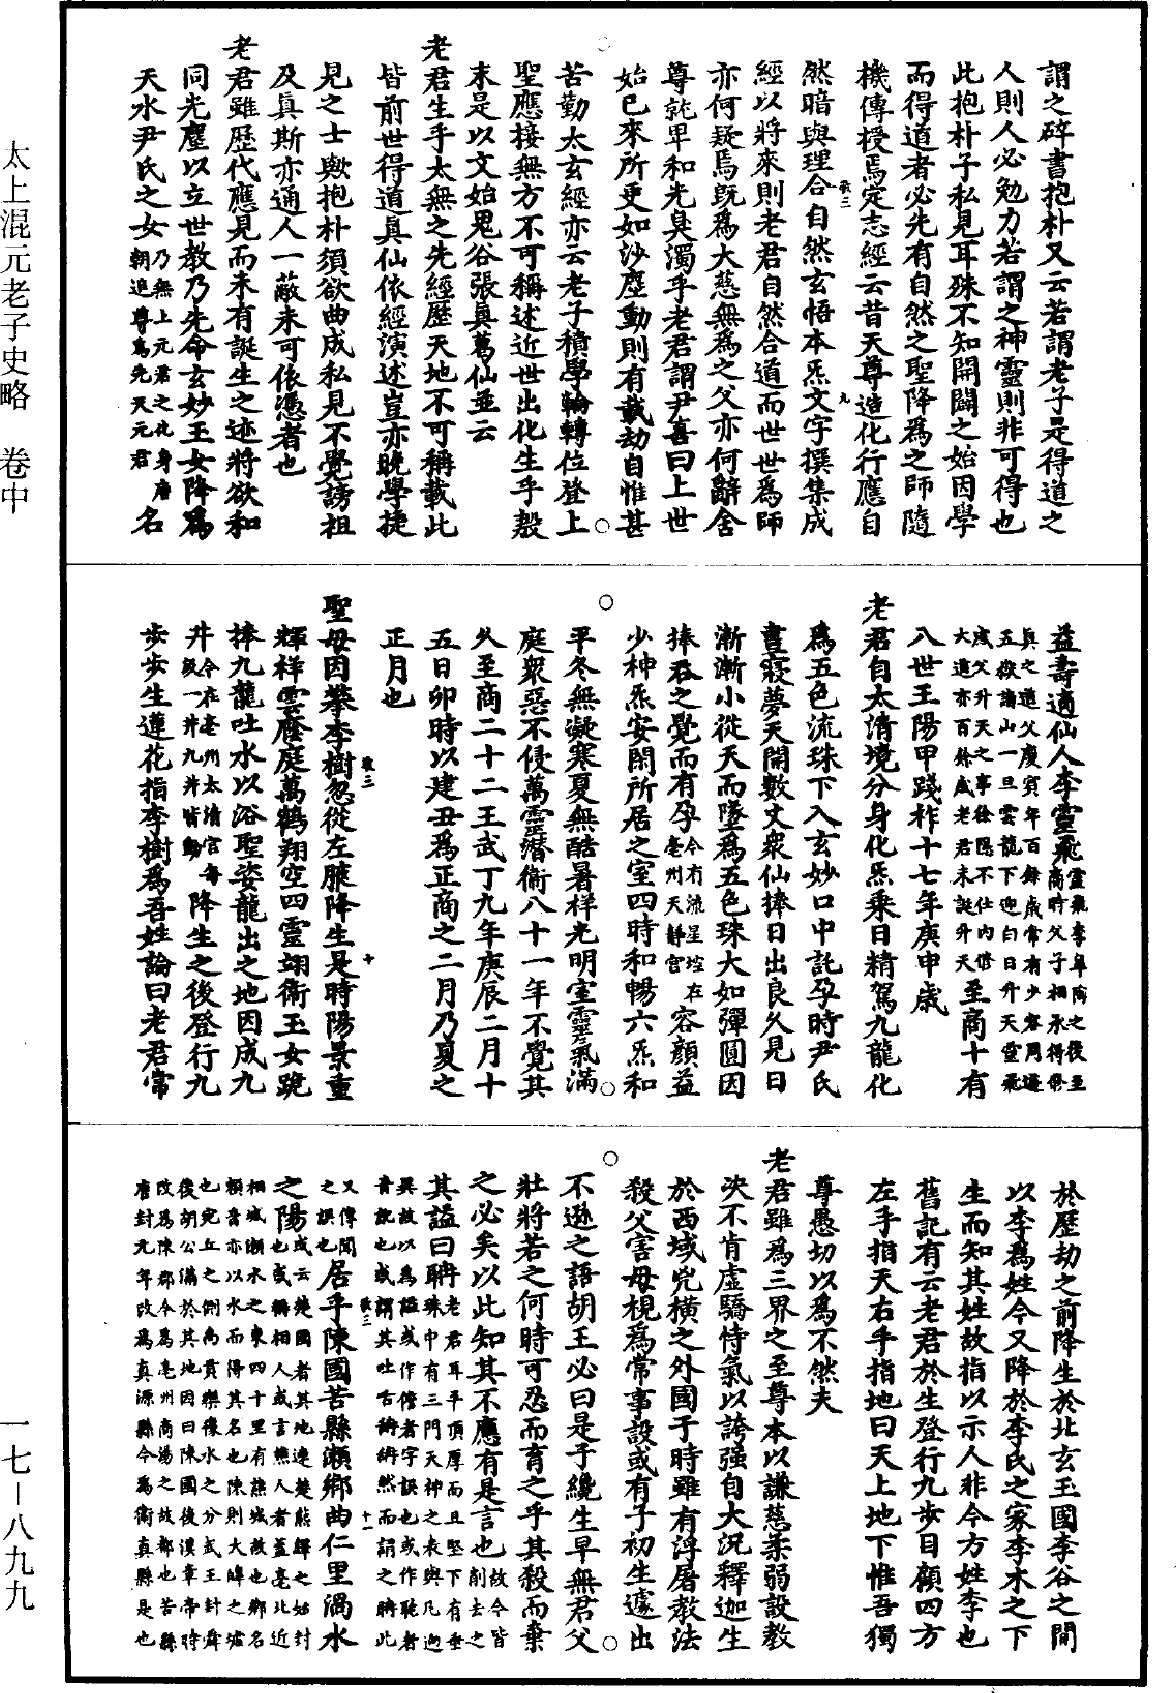 太上混元老子史略　卷中
謂之碎書抱朴又云若謂老子是得道之
人則人必勉力若謂之神靈則非可得也
此抱朴子私見耳殊不知開闢之始因學
而得道者必先有自然之聖降爲之師隨
機傳授焉定志經云昔天尊造化行應自
然暗與理合自然玄悟本炁文字撰集成
經以將來則老君自然合道而世世爲師
亦何疑焉旣爲大慈無爲之父亦何辭舍
尊就卑和光臭濁乎老君謂尹喜曰上世
始已來所更如沙塵動則有載劫自惟甚
苦勤太玄經亦云老子積學輪轉位登上
聖應接無方不可稱述近世出化生乎殷
末是以文始鬼谷張眞葛仙並云
老君生乎太無之先經歷天地不可稱載此
皆前世得道眞仙依經演述豈亦晚學捷
見之士歟抱朴須欲曲成私見不覺謗祖
及眞斯亦通人一蔽未可依憑者也
老君雖歷代應見而未有誕生之迹將欲和
同光塵以立世教乃先命玄妙玉女降爲
天水尹氏之女乃無上元君之化身唐朝追尊爲先天元君名
益壽適仙人李靈飛靈飛李皐陶之後至商時父子相承得修
眞之道父慶賓年百餘歲常有少容周遊五嶽諸山一旦雲龍下迎白日升天靈飛
感父升天之事徐隱不仕內修大道亦百餘歲老君未誕升天至商十有
八世王陽甲踐祚十七年庚申歲
老君自太清境分身化炁乘日精駕九龍化
爲五色流珠下入玄妙口中託孕時尹氏
晝寢夢天開數丈衆仙捧日出良久見日
漸漸小從天而墜爲五色珠大如彈圓因
捧吞之覺而有孕今有流星塩在亳州天靜宮容顔益
少神炁安閑所居之室四時和暢六炁和
平冬無凝寒夏無酷暑祥光明室靈氣滿
庭衆惡不侵萬靈潛衞八十一年不覺其
久至商二十二王武丁九年庚辰二月十
五日卯時以建丑爲正商之二月乃夏之
正月也
聖母因攀李樹忽從左腋降生是時陽景重
輝祥雲廕庭萬鶴翔空四靈翊衞玉女跪
捧九龍吐水以浴聖姿龍出之地因成九
井今在亳州太清宮每汲一井九井皆動降生之後登行九
步步生蓮花指李樹爲吾姓論曰老君常
於歷劫之前降生於北玄玉國李谷之間
以李爲姓今又降於李氏之家李木之下
生而知其姓故指以示人非今方姓李也
舊記有云老君於生登行九步目顧四方
左手指天右手指地曰天上地下惟吾獨
尊愚切以爲不然夫
老君雖爲三界之至尊本以謙慈柔弱設教
決不肯虛驕恃氣以誇强自大況釋迦生
於西域兇橫之外國于時雖有浮屠教法
殺父害母視爲常事設或有子初生遽出
不遜之語胡王必曰是子纔生早無君父
壯將若之何時可忍而育之乎其殺而棄
之必矣以此知其不應有是言也故今皆削去之
其謚曰聃老君耳平頂厚而且堅下有垂珠中有三門天神之衣與凡迥
異故以爲謚或作儋者字誤也或作耽者音訛也或謂其吐舌聃聃然而謂之聃此
又傳聞之誤也居乎陳國苦縣瀨鄉曲仁里渦水
之陽或云楚國者其地連楚熊繹之始封也或稱相人或言譙人者蓋亳北近
相城瀨水之東四十里有譙城故也鄉名賴音亦以水而得其名也陳則大皞之墟
也宛丘之側禹貢樂豫水之分武王封舜後胡公滿於其地因曰陳國後漢章帝時
改爲陳郡今爲亳州商湯之故都也苦縣唐封元年改爲真源縣今爲衞真縣是也
一七－八九九